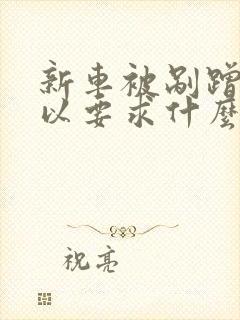 新車被剮蹭
以要求什麼
祝亮